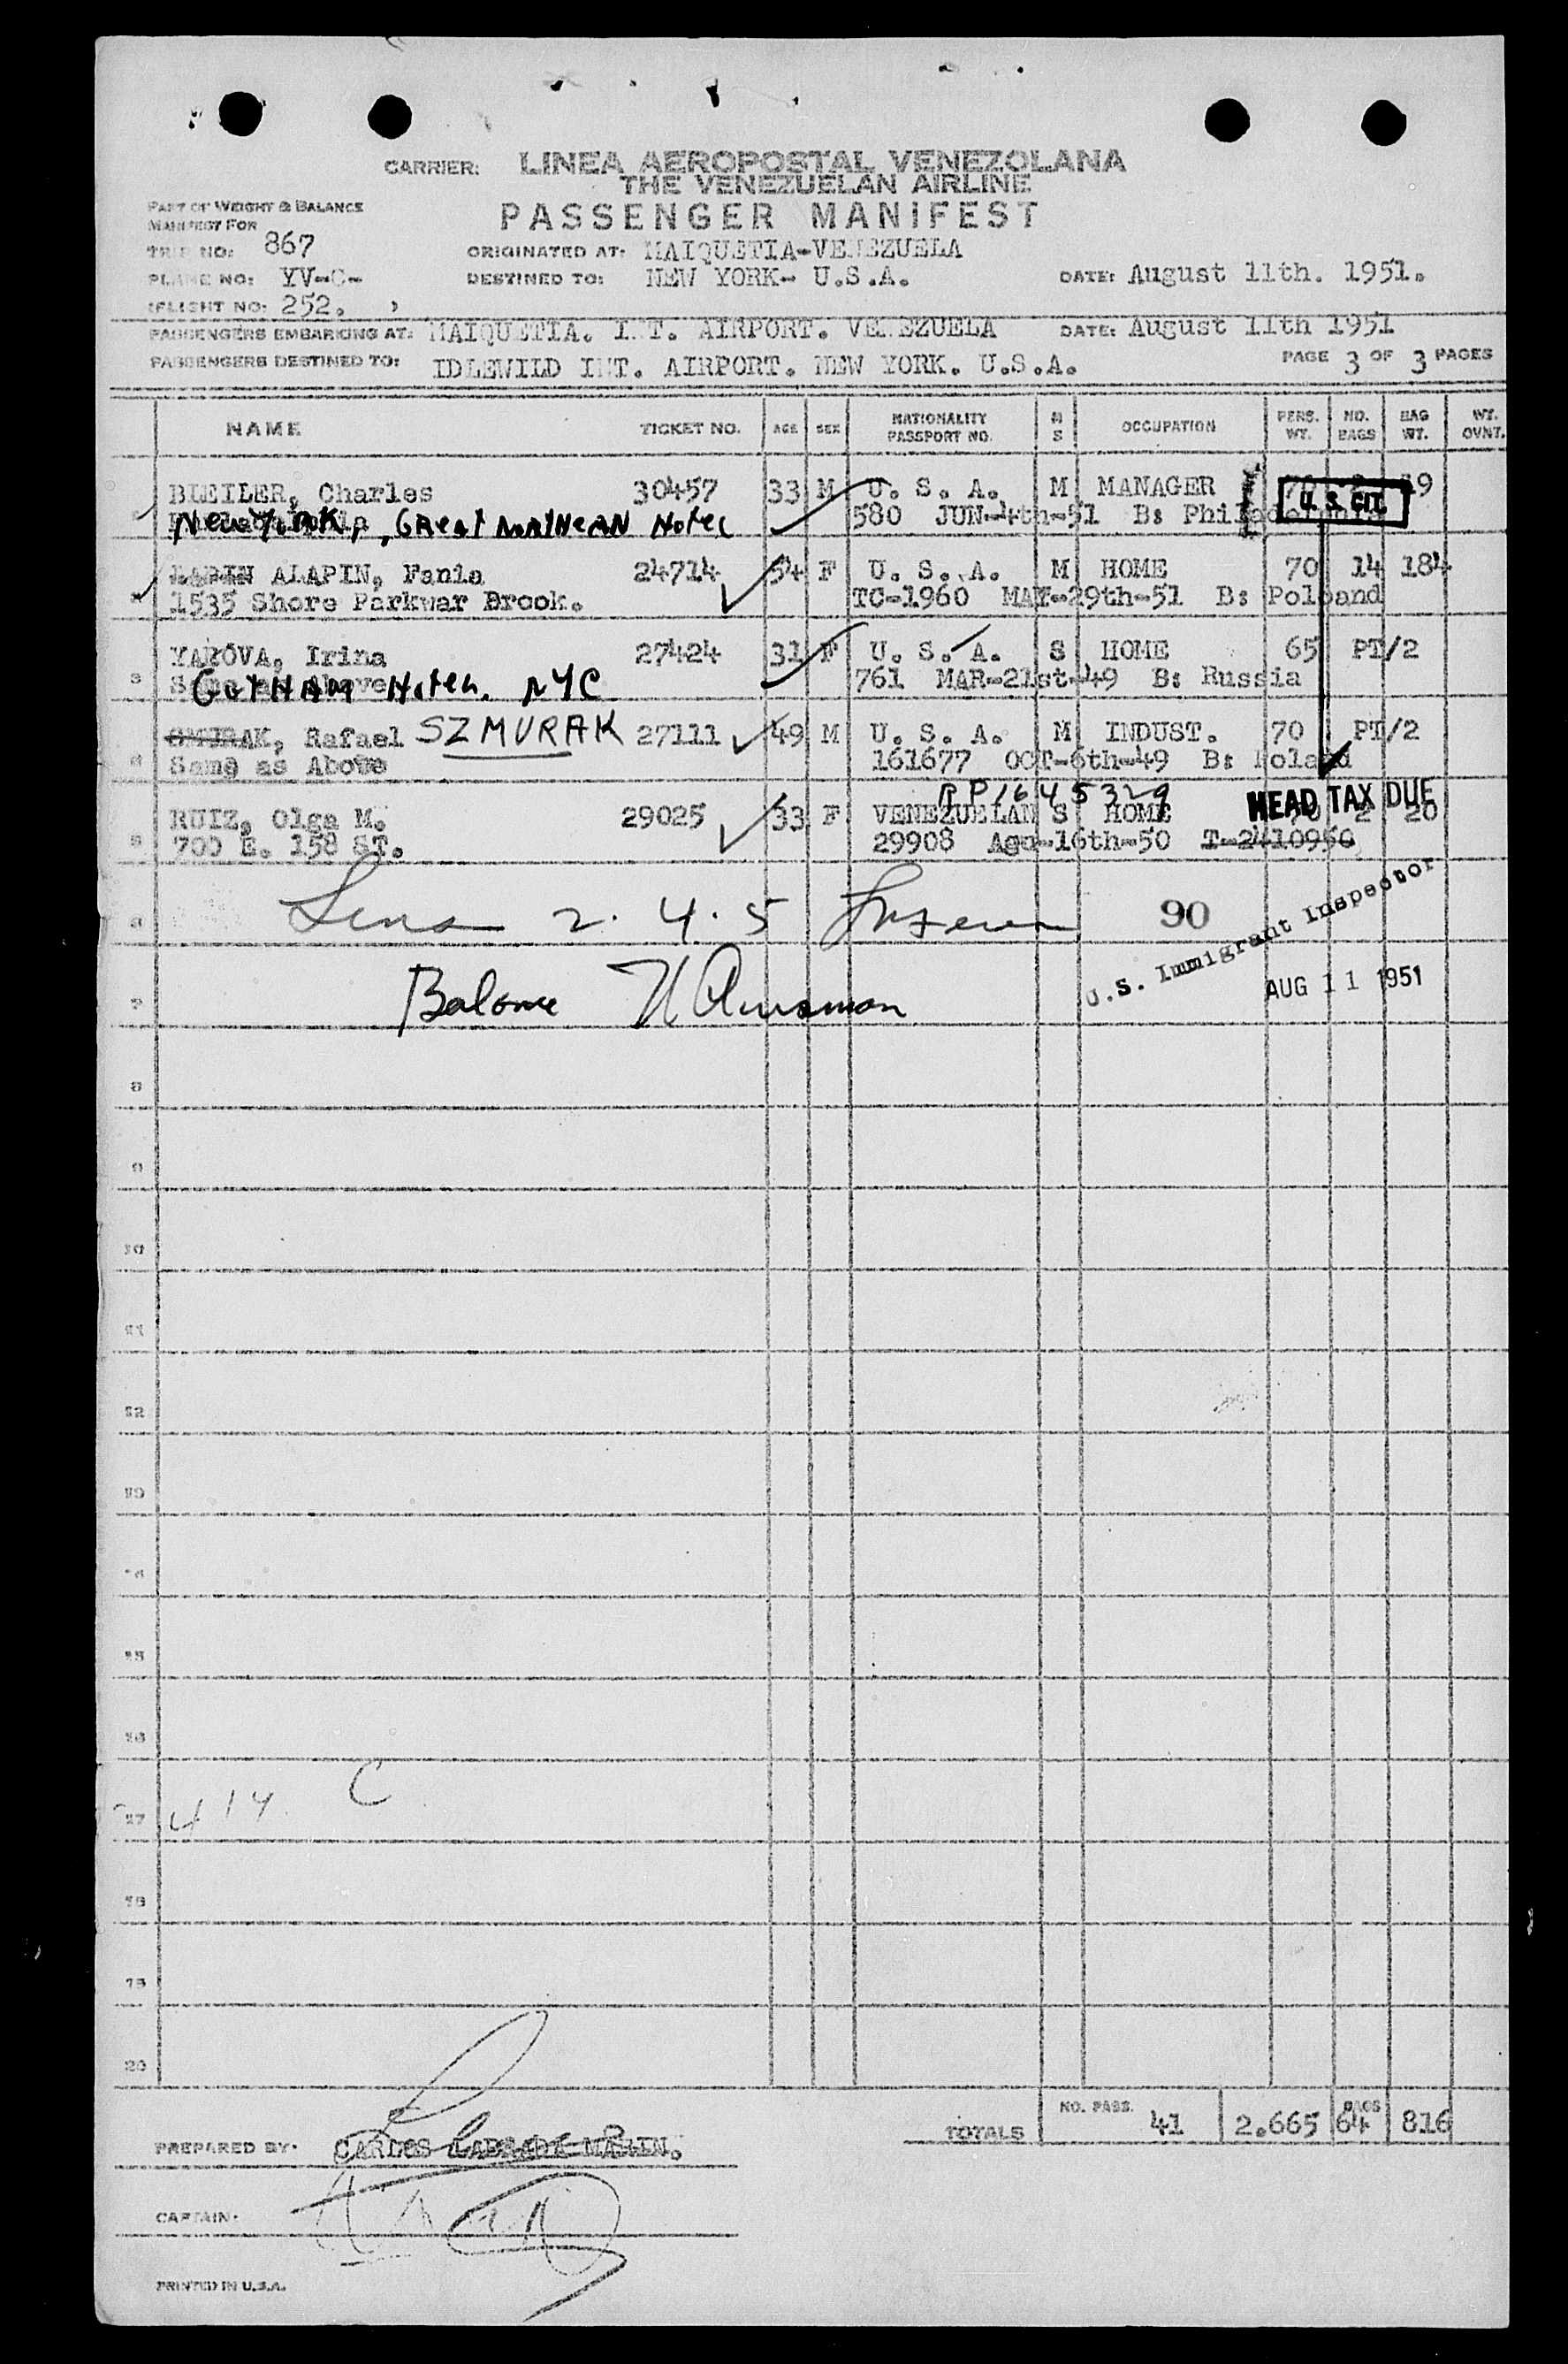 CARRIER: LINEA AEROPOSTAL VENEZOLANA
THE VENEZUELAN AIRLINE
PART OF WEIGHT & BALANCE
MANIFEST FOR
PASSENGER MANIFEST
TRIP NO: 867
ORIGINATED AT: MAIQUETIA-VENEZUELA
PLANE NO: YV-C-
DESTINED TO: NEW YORK- U.S.A.
DATE: August 11th. 1951.
(FLIGHT NO: 252. )
PASSENGERS EMBARKING AT: MAIQUETIA. INT. AIRPORT. VENEZUELA DATE: August 11th 1951
PASSENGERS DESTINED TO: IDLEWILD INT. AIRPORT. NEW YORK. U.S.A. PAGE 3 OF 3 PAGES
NAME TICKET NO. AGE SEX NATIONALITY PASSPORT NO. M S OCCUPATION PERS. WT. NO. BAGS BAG WT. WT. OVNT.
BLEILER, Charles 30457 33 M U. S. A. M MANAGER 70 2 19
U. S. CIT.
New York, Great Northern Hotel 580 JUN-4th-51 B: Philadelphia
LAPIN ALAPIN, Fania 24714 54 F U. S. A. M HOME 70 14 184
1535 Shore Parkwar Brook. TC-1960 MAY-29th-51 B: Poloand
YAROVA, Irina 27424 31 F U. S. A. S HOME 65 PT/2
3 Same as Above GOTHAM Hotel. NYC 761 MAR-21st-49 B: Russia
SMURAK, Rafael SZMURAK 27111 49 M U. S. A. M INDUST. 70 PT/2
Same as Above 161677 OCT-6th-49 B: Poland
RP1645329
RUIZ, Olga M. 29025 33 F VENEZUELAN S HOME 70 2 20
HEAD TAX DUE
5 700 E. 158 ST. 29908 Ago-16th-50 T-2410956
2. 4. 5 90
U.S. Immigrant Inspector
7 Balance
AUG 11 1951
8
9
10
11
12
13
14
15
16
17 414. C
18
19
20
TOTALS NO. PASS. 41 2.665 BAGS 64 816
PREPARED BY: CARLOS MARIN.
CAPTAIN:
PRINTED IN U.S.A.